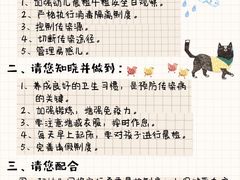 1、加强幼儿晨检午检及全日观察。
2、严格执行消毒隔离制度。
3、控制传染源。
4、切断传染途径。
5、管理易感儿。
二、请您知晓并做到：
1、养成良好的卫生习惯，是预防传染病
的关键。
2、加强锻炼，增强免疫力。
3、注意衣物增减，按时作息。
4、每天早上起床，要对孩子进行晨检。
5、完善请假制度。
三、请您配合